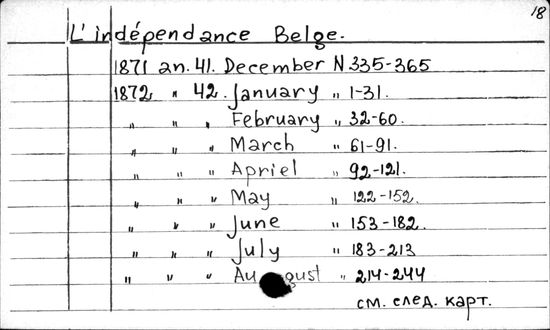 18
L'indépendance Belge.
1871 an. 41. December N 335-365
1872 " 42. January " 1-31.
" " " February " 32-60.
" " " March " 61-91.
" " " Apriel " 92-121.
" " " May " 122-152.
" " " June " 153-182.
" " " July " 183-213
" " " August " 214-244
см. след. карт.